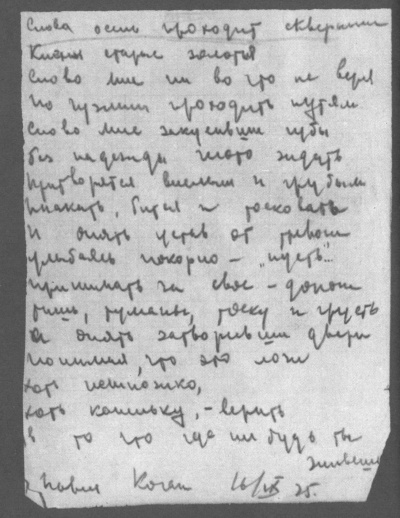 Снова осень проходит скверами
Клёны старые золотя
Снова мне ни во что не веря
По чужим проходить путям
Снова мне закусивши губы
Без надежды чего ждать
Притворятся весёлым и грубым
Плакать, биться и тосковать
И опять устав от тревог
улыбаясь покорно – „пусть"..
принимать за свое –
тишь, туманы, тоску и грусть
А опять затворивши двери
понимая, что это ложь
хоть немножко,
хоть капельку, – верить
в то что где нибудь ты
живёшь
Павел Коган 16/IX 35.